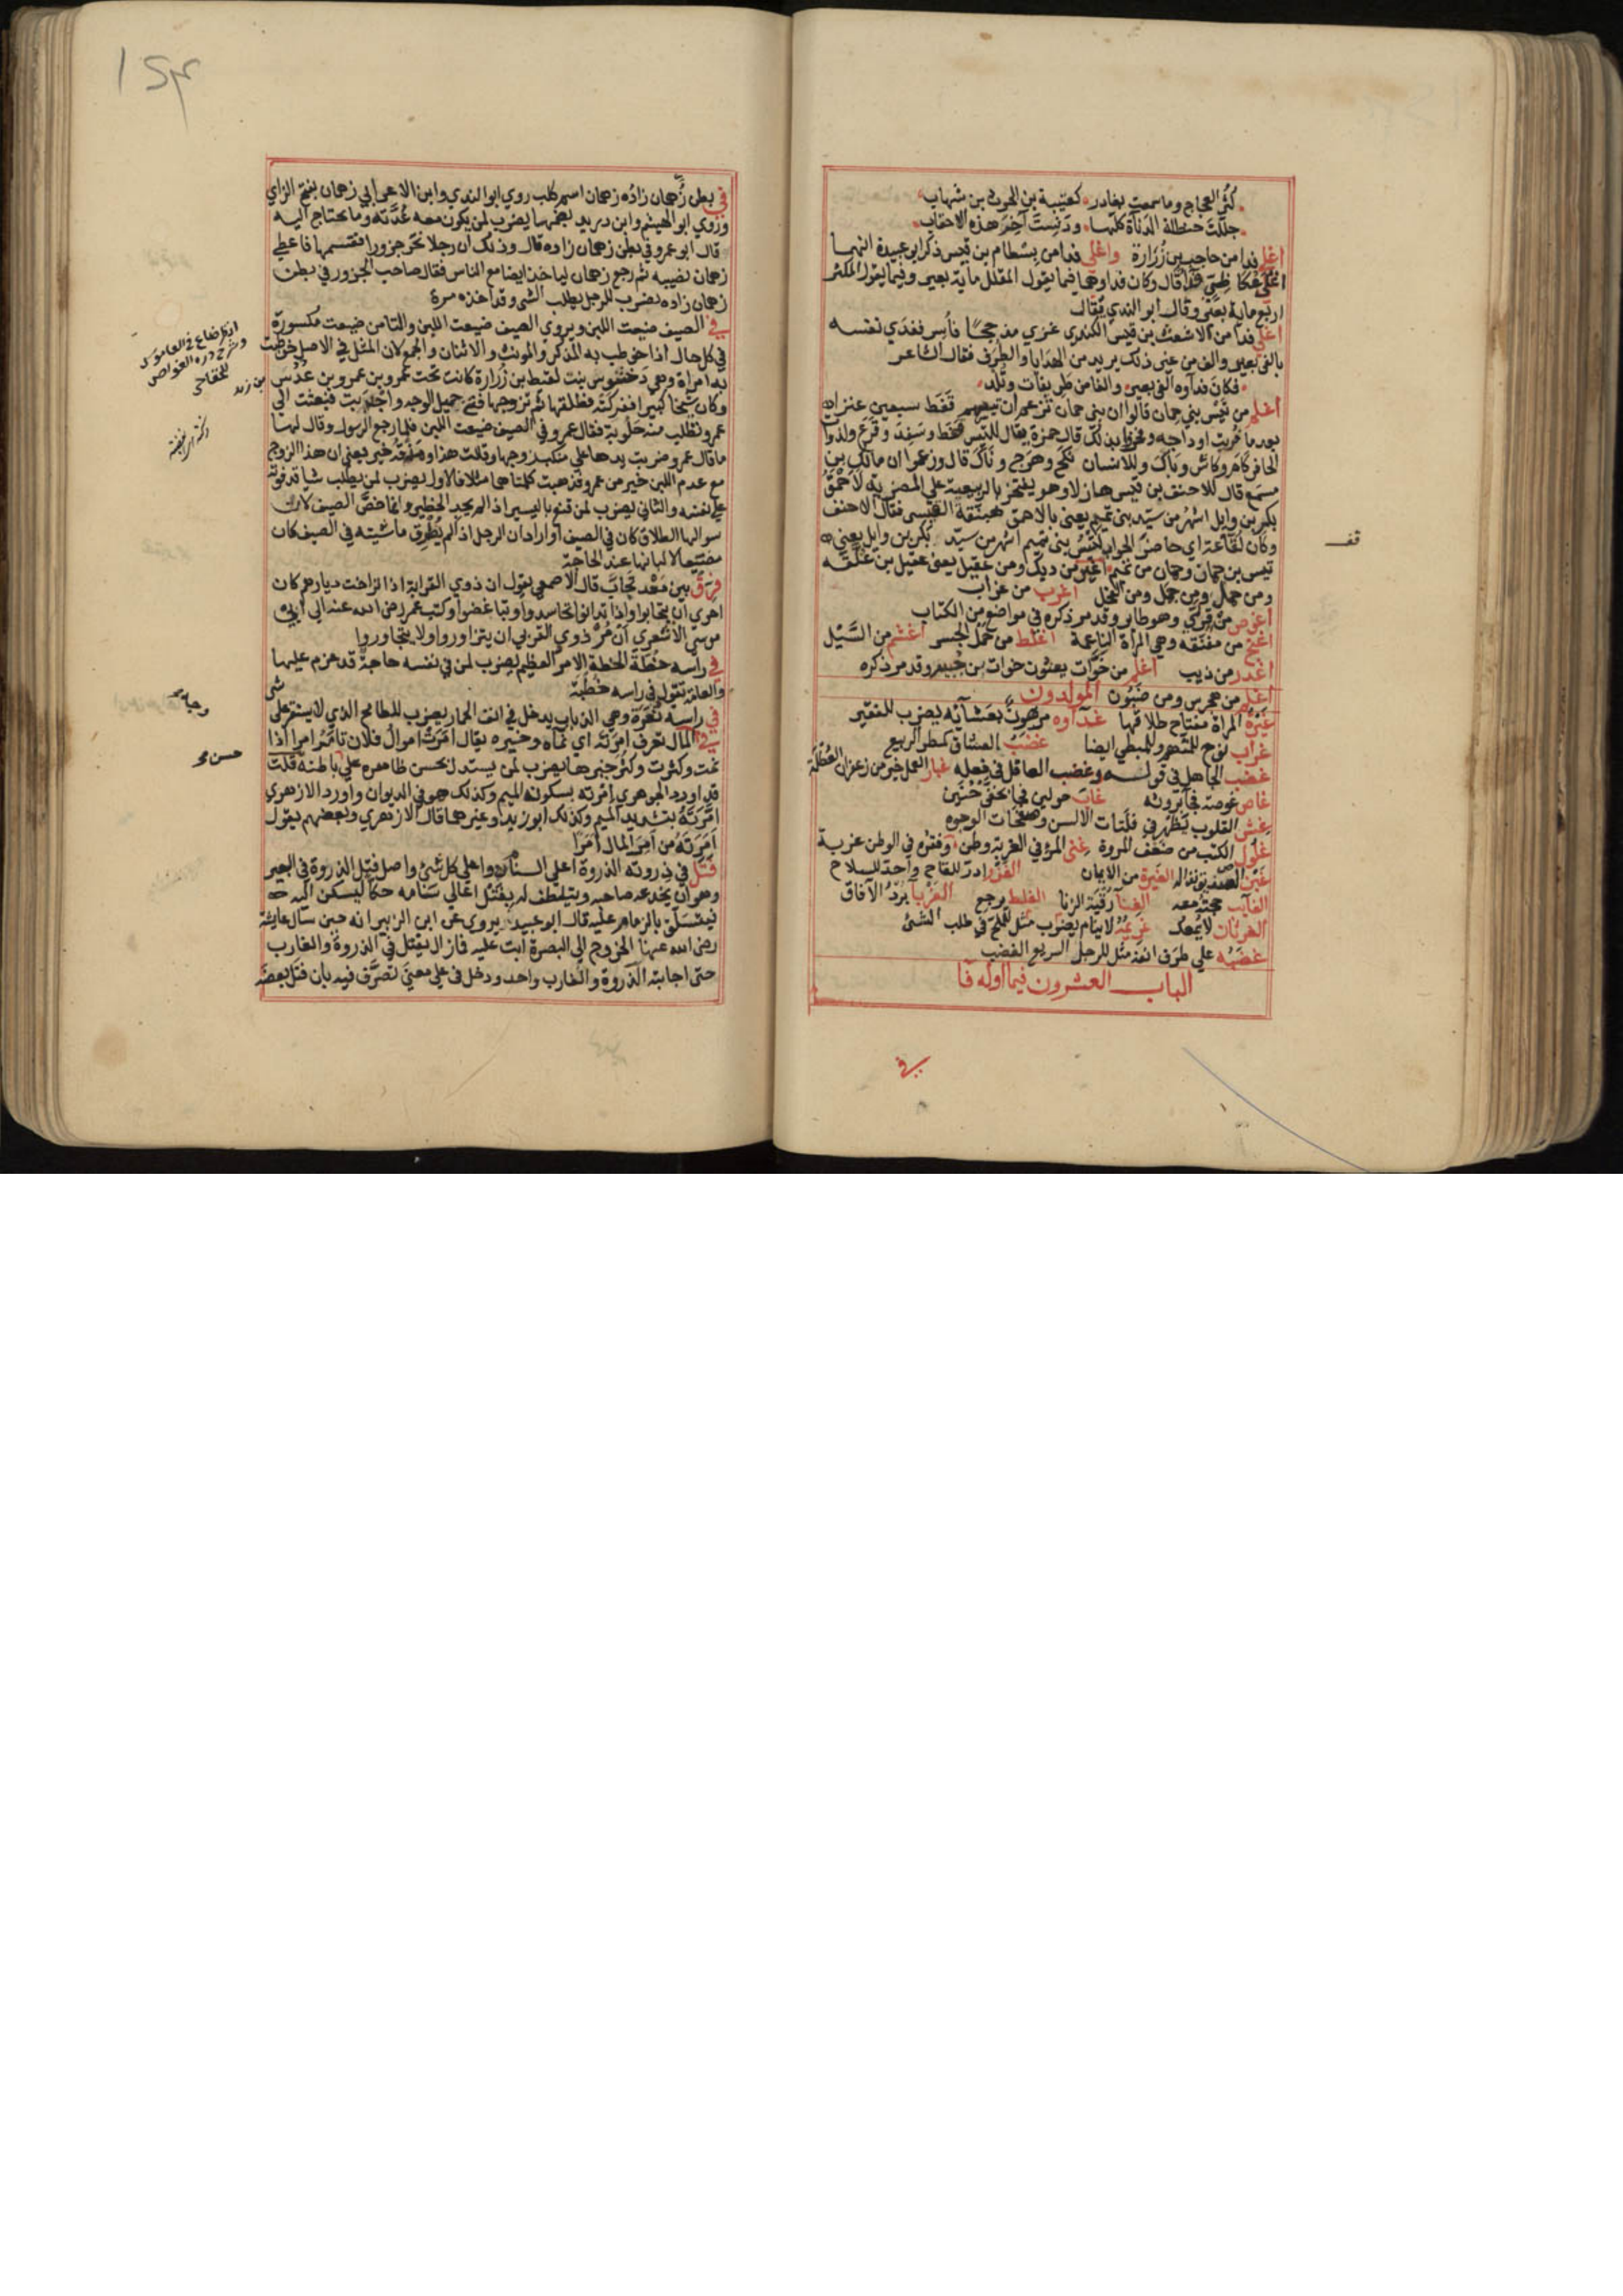 كثر العجاج وما سمعت بغادر كعتيبة بن الحرث بن شهاب
جللت حنظلة الدناة كلها ودنست آخر هذه الاحقاب
اغلى فدا من حاجب بن زرارة واغلى فدا من بسطام بن قيس ذكر ابو عبيدة انهما
اغلى عكاظي فدا قال وكان فداوهما فيما يقول المقلل ماية بعير وفيما يقول المكثر
اربع ماية بعير وقال ابو الندي يقال
اغلى فدا من الاشعث بن قيس الكندى غزي مذحجا فأسر ففدي نفسه
بالفى بعير والف من غير ذلك يريد من الهدايا والطرف فقال الشاعر
فكان فداوه الفى بعير والفا من طريفات وتلد
اغلم من تيس بني حمان قالوا ان بني حمان تزعم ان تيسهم قفط سبعين عنزا
بعد ما فريت اوداجه وفخروا بذلك قال حمزة يقال للتيس قفط وسفد وقرع ولذوات
الحافر كام وكاش وباك وللانسان نكح وهرج وناك قال وزعموا ان مالك بن
مسمع قال للاحنف بن قيس هازلا وهو يفتخر بالربيعية على المضرية لاحمق
بكر بن وايل اشهر من سيد بني تميم يعني بالاحمق هبنقة القيسى فقال الاحنف
وكان لقاعة اي حاضر الجواب لتيس بني تميم اشهر من سيد بكر بن وايل يعني
تيس بن حمان وحمان من تميم اغير من ديك ومن عقيل يعنى عقيل بن علفة
ومن جمل ومن الفحل اغرب من غراب
اغوص من قرلي وهو طاير وقد مر ذكره في مواضع من الكتاب
اغنج من مفنقه وهي المراة الناعمة اغلظ من حمل الجسر اغشم من السيل
اغدر من ذيب اغلم من خوات يعنون خوات بن جبير وقد مر ذكره
اغلم من هجرس ومن ضيون المولدون
غيرة المراة مفتاح طلاقها غداوه مرهون بعشائه يضرب للفقير
غراب نوح للمتهم وللمبطي ايضا غضب العشاق كمطر الربيع
غضب الجاهل في قوله وغضب العاقل في فعله غبار العمل خير من زعفران العطلة
غاص غوصة في روثه غاب حولين فجا بخفي حنين
غش القلوب يظهر في فلتات الالسن وصفحات الوجوه
غلول الكتب من ضعف المروة غنى المرؤ في الغربة وطن وفقره في الوطن غربة
الغيرة من الايمان
الغايب حجته معه الغنا رقية الزنا الغلط يرجع الغربا برد الافاق
غريمه لا ينام يضرب مثل للملح في طلب الشئ
غضبه على طرف انفه مثل للرجل السريع الغضب
الباب العشرون فيما اوله فا
في
قف
في بطن زهمان زاده زهمان اسم كلب روي ابو الندي وابن الاعرابي زهمان بفتح الزاي
وروي ابو الهيثم وابن دريد بضمها يضرب لمن يكون معه عدته وما يحتاج اليه
قال ابو عمرو في بطن زهمان زاده قال وذلك ان رجلا نحر جزورا فقسمها فاعطي
زهمان نصيبه ثم رجع زهمان لياخذ ايضا مع الناس فقال صاحب الجزور في بطن
زهمان زاده يضرب للرجل يطلب الشى وقد اخذه مرة
في الصيف ضيعت اللبن ويروي الصيف ضيعت اللبن والتا من ضيعت مكسورة
في كل حال اذا خوطب به المذكر والمونث والاثنان والجمع لان المثل في الاصل خوطبت
به امراة وهي دختنوس بنت لقيط بن زرارة كانت تحت عمرو بن عمرو بن عدس
وكان شيخا كبيرا ففركته فطلقها ثم تزوجها فتى جميل الوجه واجدبت فبعثت الي
عمرو تطلب منه حلوبة فقال عمرو في الصيف ضيعت اللبن فلما رجع الرسول وقال لها
ما قال عمرو ضربت يدها على منكب زوجها وقالت هذا ومذقه خير يعني ان هذا الزوج
مع عدم اللبن خير من عمرو فذهبت كلمتاهما مثلا فالاول يضرب لمن يطلب شيا قد فوته
على نفسه والثاني يضرب لمن قنع باليسير اذا لم يجد الخطير وانما خص الصيف لان
سوالها الطلاق كان في الصيف او اراد ان الرجل اذا لم يطرق ماشيته في الصيف كان
مضيعا لالبانها عند الحاجة
فرق بين معد تحاب قال الاصمعي يقول ان ذوي القرابة اذا تراخت ديارهم كان
احري ان يتحابوا واذا تدانوا تحاسدوا وتباغضوا وكتب عمر رضى الله عنه الى ابى
موسى الاشعري ان مر ذوي القربى ان يتزاوروا ولا يتجاوروا
في راسه خطة الخطة الامر العظيم يضرب لمن في نفسه حاجة قد عزم عليها
والعامة تقول في راسه خطبة
في راسه نعرة وهي الذباب يدخل في انف الحمار يضرب للطامح الذي لا يستقر على شى
في المال تعرف امرته اي نماه وخيره يقال امرت اموال فلان تامر امرا اذا
نمت وكثرت وكثر خيرها يضرب لمن يستدل بحسن ظاهره على باطنه قلت
قد اورد الجوهري امرته بسكون الميم وكذلك هو في الديوان واورد الازهري
امرته بتشديد الميم وكذلك ابو زيد وغيرهما قال الازهري وبعضهم يقول
امرته من امر المال امرا
فتل في ذروته الذروة اعلى السنام واعلى كل شئ واصل فتل الذروة في البعير
وهو ان يخدعه صاحبه ويتلطف له بفتل اعالي سنامه حكا ليسكن اليه
فيتسلق بالزمام عليه قال ابو عبيد ويروى عن ابن الزبير انه حين سال عايشة
رضى الله عنها الخروج الى البصرة ابت عليه فما زال يفتل في الذروة والغارب
حتى اجابته الذروة والغارب واحد ودخل في على معنى تصرف فيه بان فتل بعضه
انظر ضاع في القاموس
وشرح درة الغواص
للخفاجي
بن زيد